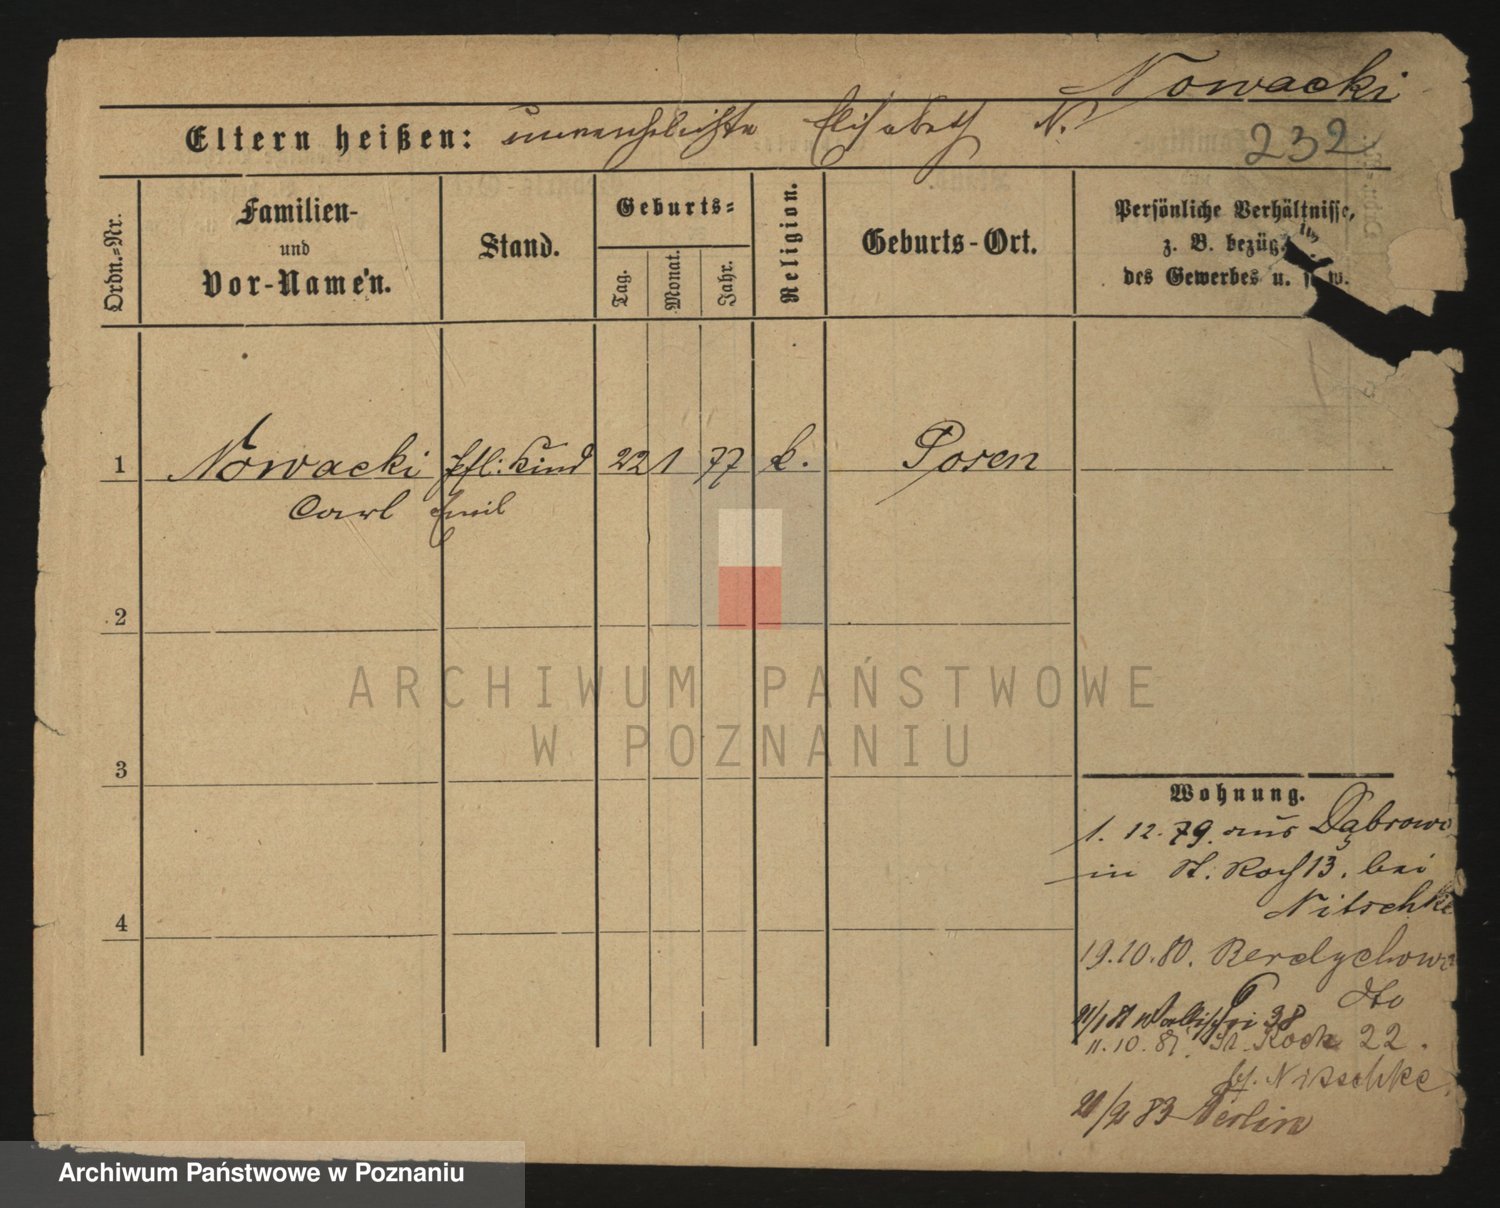 Nowacki
Eltern heißen: unverehelichte Elisabeth N.
232
Ordn.-Nr.
Familien-
und
Vor-Namen.
Stand.
Geburts-
Tag.
Monat.
Jahr.
Religion.
Geburts-Ort.
Persönliche Verhältnisse,
z. B. bezüg
des Gewerbes u. s. w.
1 Nowacki Pfl: Kind 22 1 77 k. Posen
Carl Emil
2
3
4
Wohnung.
1. 12. 79. aus Dąbrow
in St. Roch 13. bei
Nitschke
19.10.80. Berdychowo
dto
21/1 81 Wallischei 38
11.10.81. St. Roch 22.
b/. Nitschke
Berlin
ARCHIWUM PAŃSTWOWE
W POZNANIU
Archiwum Państwowe w Poznaniu